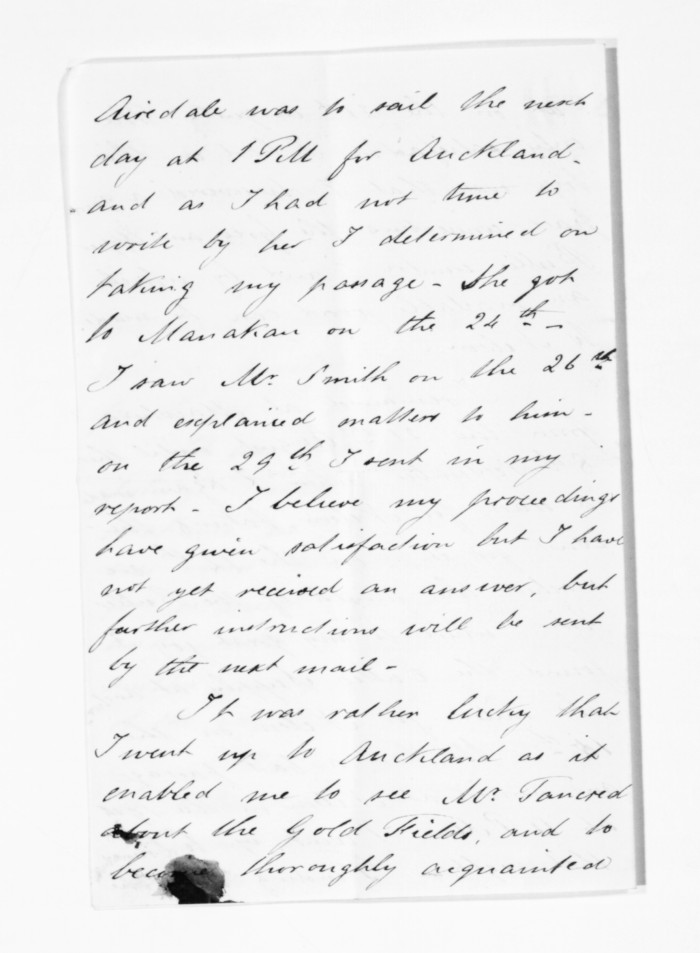 Airedale was to sail the next
day at 1 PM for Auckland -
and as I had not time to
write by her I determined on
taking my passage - She got
to Manakau on the 24th -
I saw Mr. Smith on the 26th
and explained matters to him -
on the 29th I sent in my
report - I believe my proceedings
have given satisfaction but I have
not yet received an answer, but
further instructions will be sent
by the next mail -
It was rather lucky that
I went up to Auckland as it
enabled me to see Mr. Tancred
about the Gold Fields, and to
become thoroughly acquainted